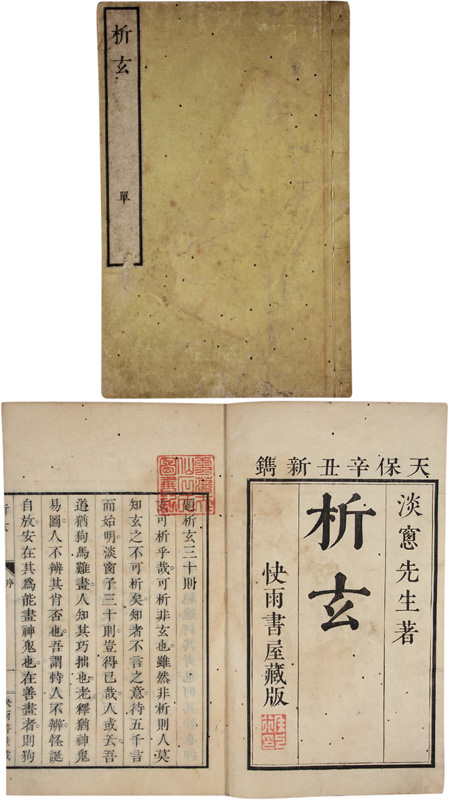 析玄
單
天保辛丑新鐫
淡窻先生著
析玄
快雨書屋藏版
題析玄三十則
玄可析乎哉可析非玄也雖然非析則人莫
知玄之不可析矣知者不言之意待五千言
而始明淡窗子三十則豈得已哉人或云吾
道猶狗馬難畫人知其巧拙也老釋猶神鬼
易圖人不辨其肖否也吾謂特人不辨怪誕
自放安在其爲能畫神鬼也在善畫者則狗
序